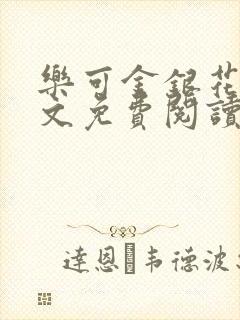 樂可金銀花
文免費閱讀
達恩 韦德波